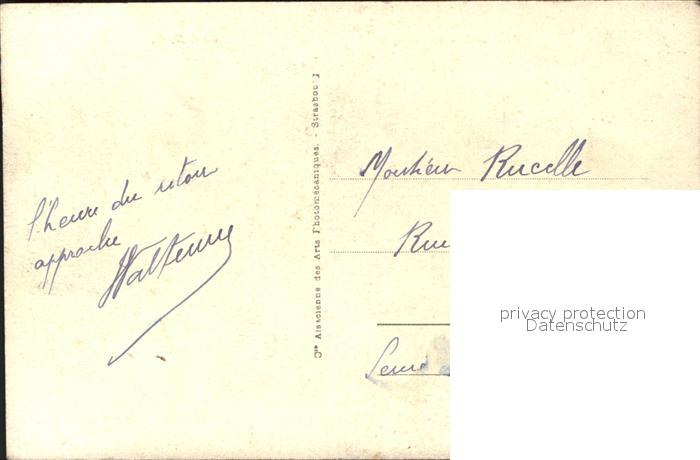 l'heure du retour
approche
Cie Alsacienne des Arts Photomécaniques. - Strasbourg
Monsieur Rucelle
Rue
privacy protection
Datenschutz